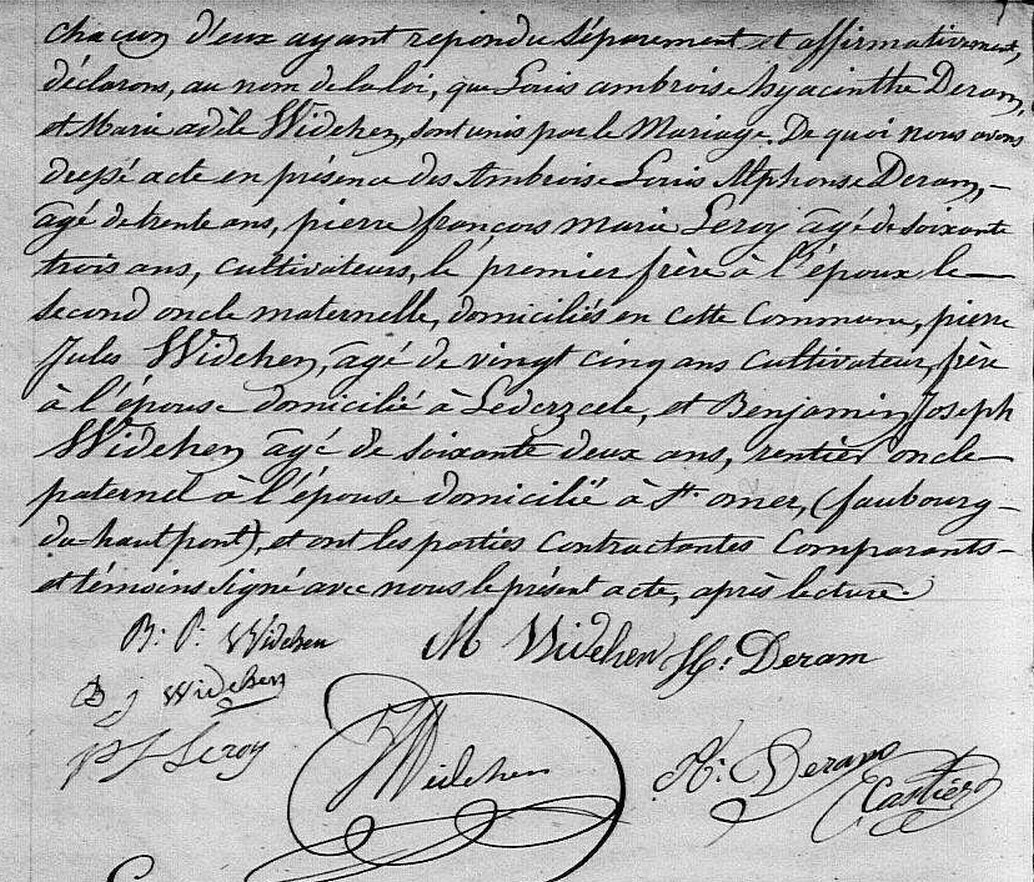 chacun d'eux ayant repondu séparement et affirmativement,
déclarons, au nom de la loi, que Louis ambroise hyacinthe Deram,
et Marie adèle Widehen, sont unis par le Mariage. De quoi nous avons
dressé acte en présence des Ambroise Louis Alphonse Deram, -
âgé de trente ans, pierre françois marie Leroy âgé de soixante
trois ans, cultivateurs, le premier frère à l'époux le
second oncle maternelle, domiciliés en cette Commune, pierre
Jules Widehen, âgé de vingt cinq ans cultivateur, frère
à l'épouse domicilié à Lederzeele, et Benjamin Joseph
Widehen âgé de soixante deux ans, rentier oncle
paternel à l'épouse domicilié à St. omer, (faubourg -
du-haut pont), et ont les parties Contractantes Comparants -
et témoins signé avec nous le présent acte, après lecture.
B: P: Widehen M Widehen H: Deram
B J Widehen
p f Leroy Widehen A: Deram
Castier